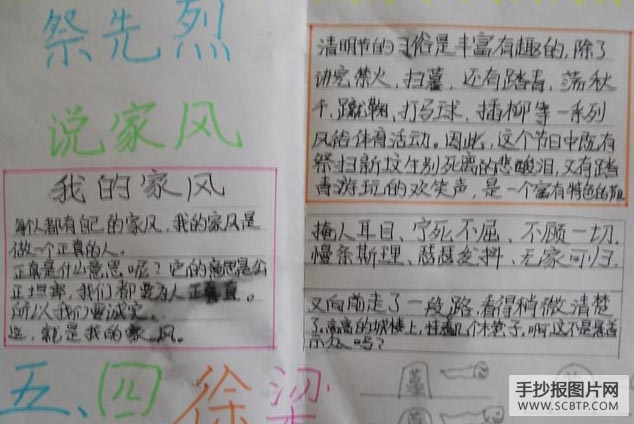 祭先烈
说家风
我的家风
每个人都有自己的家风,我的家风是
做一个正真的人。
正真是什么意思呢?它的意思是公
正坦率,我们都要为人正直。
所以我们要诚实。
这,就是我的家风。
五、四 徐梁
清明节的习俗是丰富有趣的,除了
讲究禁火、扫墓,还有踏青、荡秋
千、蹴鞠、打马球、插柳等一系列
风俗体育活动。因此,这个节日中既有
祭扫新坟生别死离的悲酸泪,又有踏
青游玩的欢笑声,是一个富有特色的节
掩人耳目、宁死不屈、不顾一切、
慢条斯理、瑟瑟发抖、无家可归、
又向前走了一段路,看得稍微清楚
了,高高的城楼上,挂着几个木笼子。啊,这不是悬首
示众吗?
墓
墓
手抄报图片网
WWW.SCBTP.COM